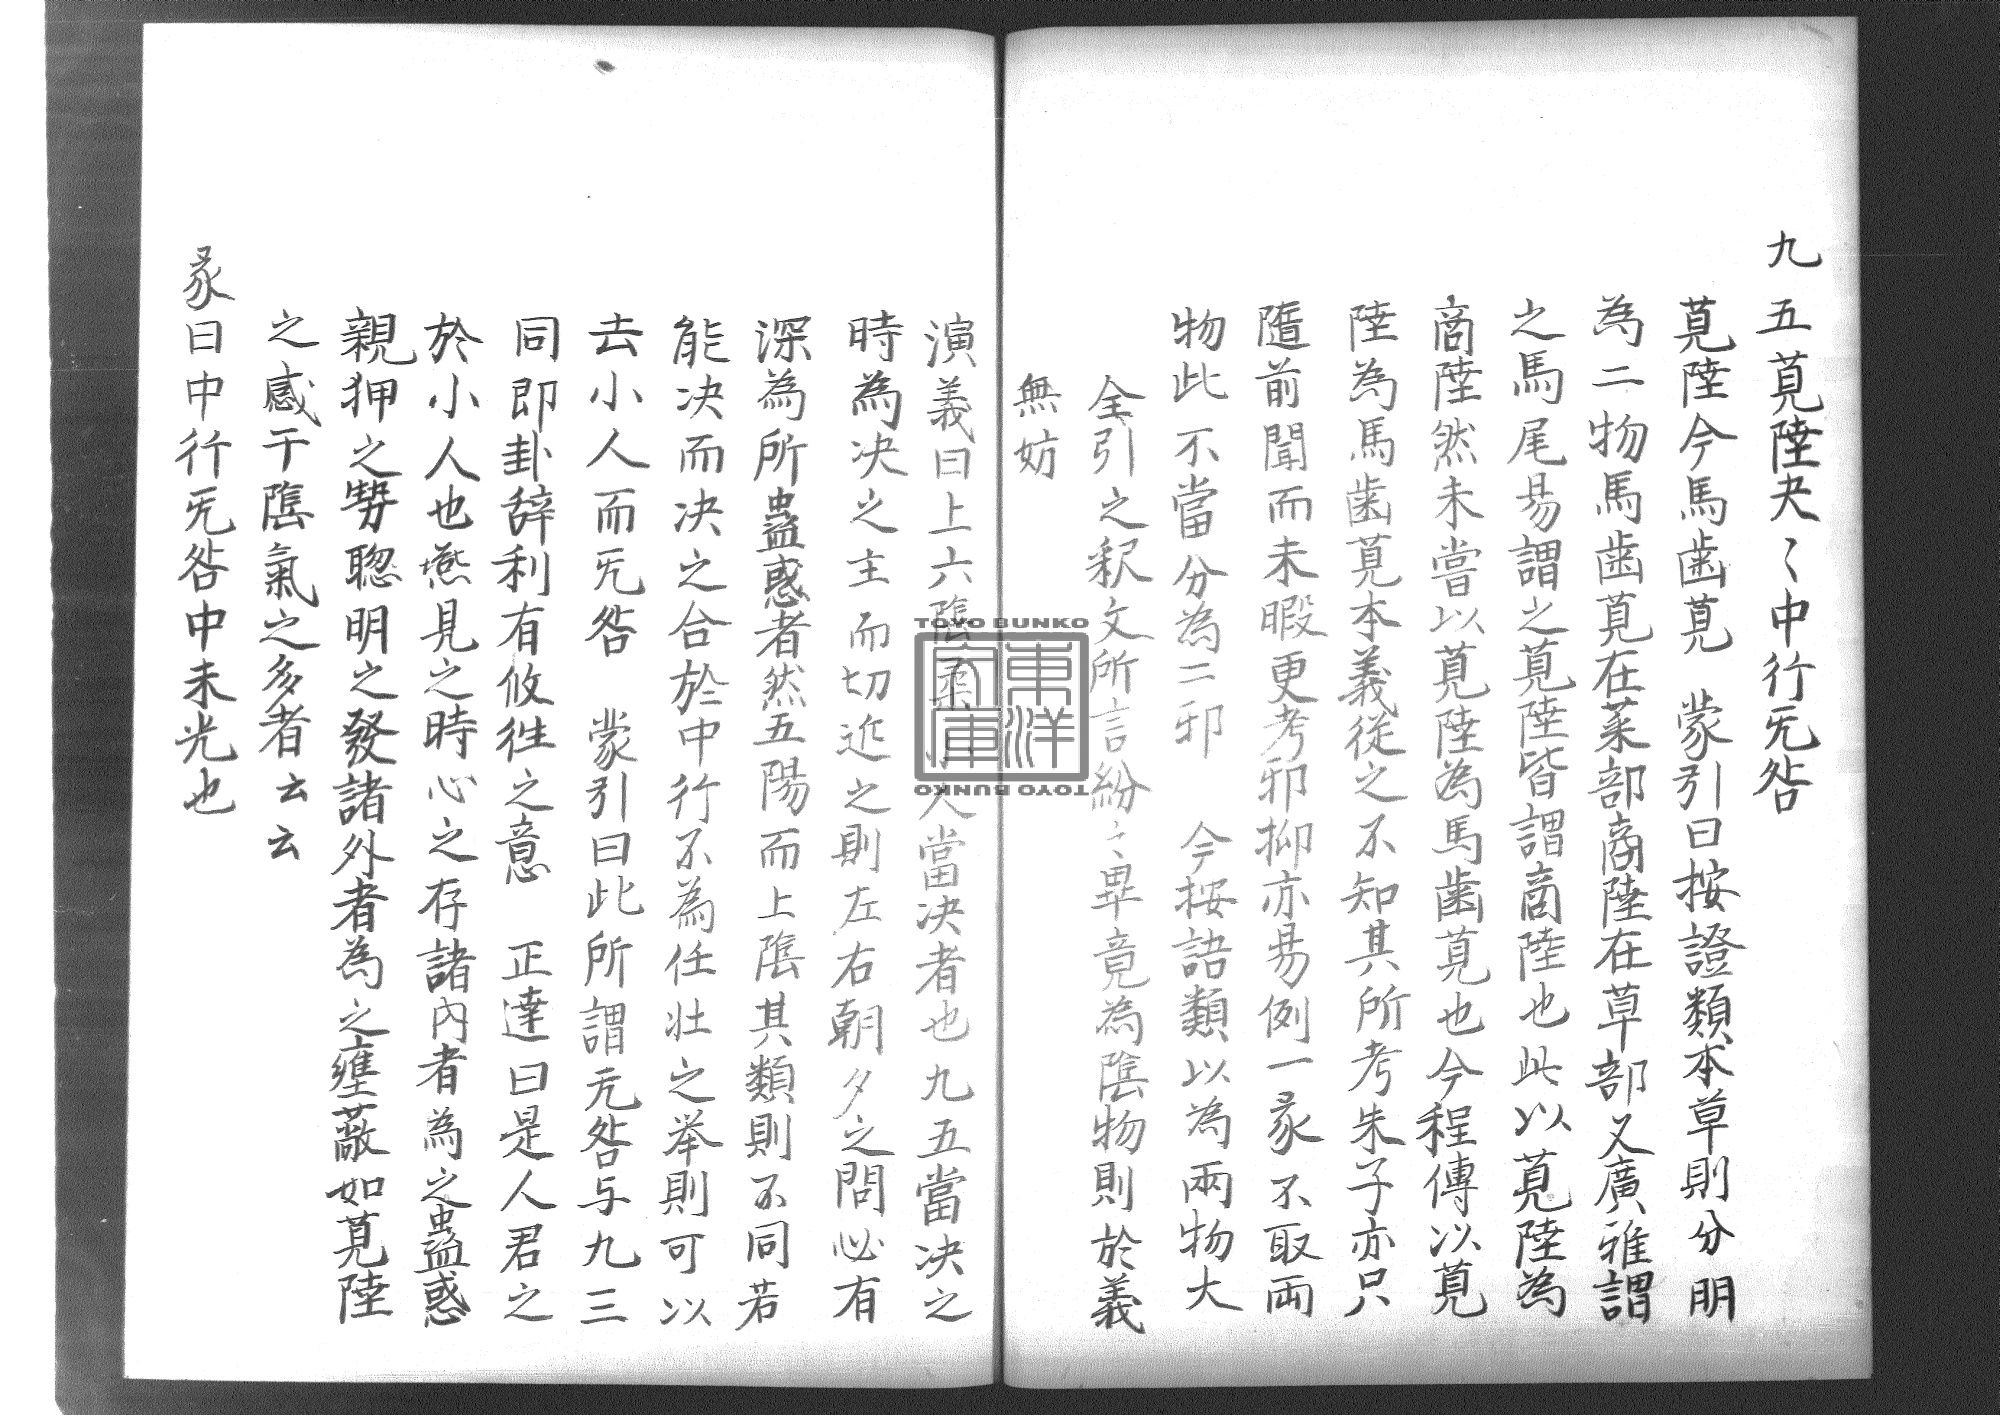 九五莧陸夬〻中行无咎
莧陸今馬齒莧　蒙引曰按證類本草則分明
為二物馬齒莧在菜部商陸在草部又廣雅謂
之馬尾易謂之莧陸皆謂商陸也此以莧陸為
商陸然未嘗以莧陸為馬齒莧也今程傳以莧
陸為馬齒莧本義從之不知其所考朱子亦只
隨前聞而未暇更考邪抑亦易例一彖不取兩
物此不當分為二邪　今按語類以為兩物大
全引之釈文所言紛〻畢竟為陰物則於義
無妨
演義曰上六陰柔小人當决者也九五當决之
時為决之主而切近之則左右朝夕之間必有
深為所蠱惑者然五陽而上陰其類則不同若
能决而决之合於中行不為任壯之举則可以
去小人而无咎　蒙引曰此所謂无咎与九三
同即卦辞利有攸徃之意　正達曰是人君之
於小人也燕見之時心之存諸內者為之蠱惑
親狎之勢聡明之發諸外者為之壅蔽如莧陸
之感于陰氣之多者云云
彖曰中行无咎中未光也
TOYO BUNKO
東洋文庫
TOYO BUNKO